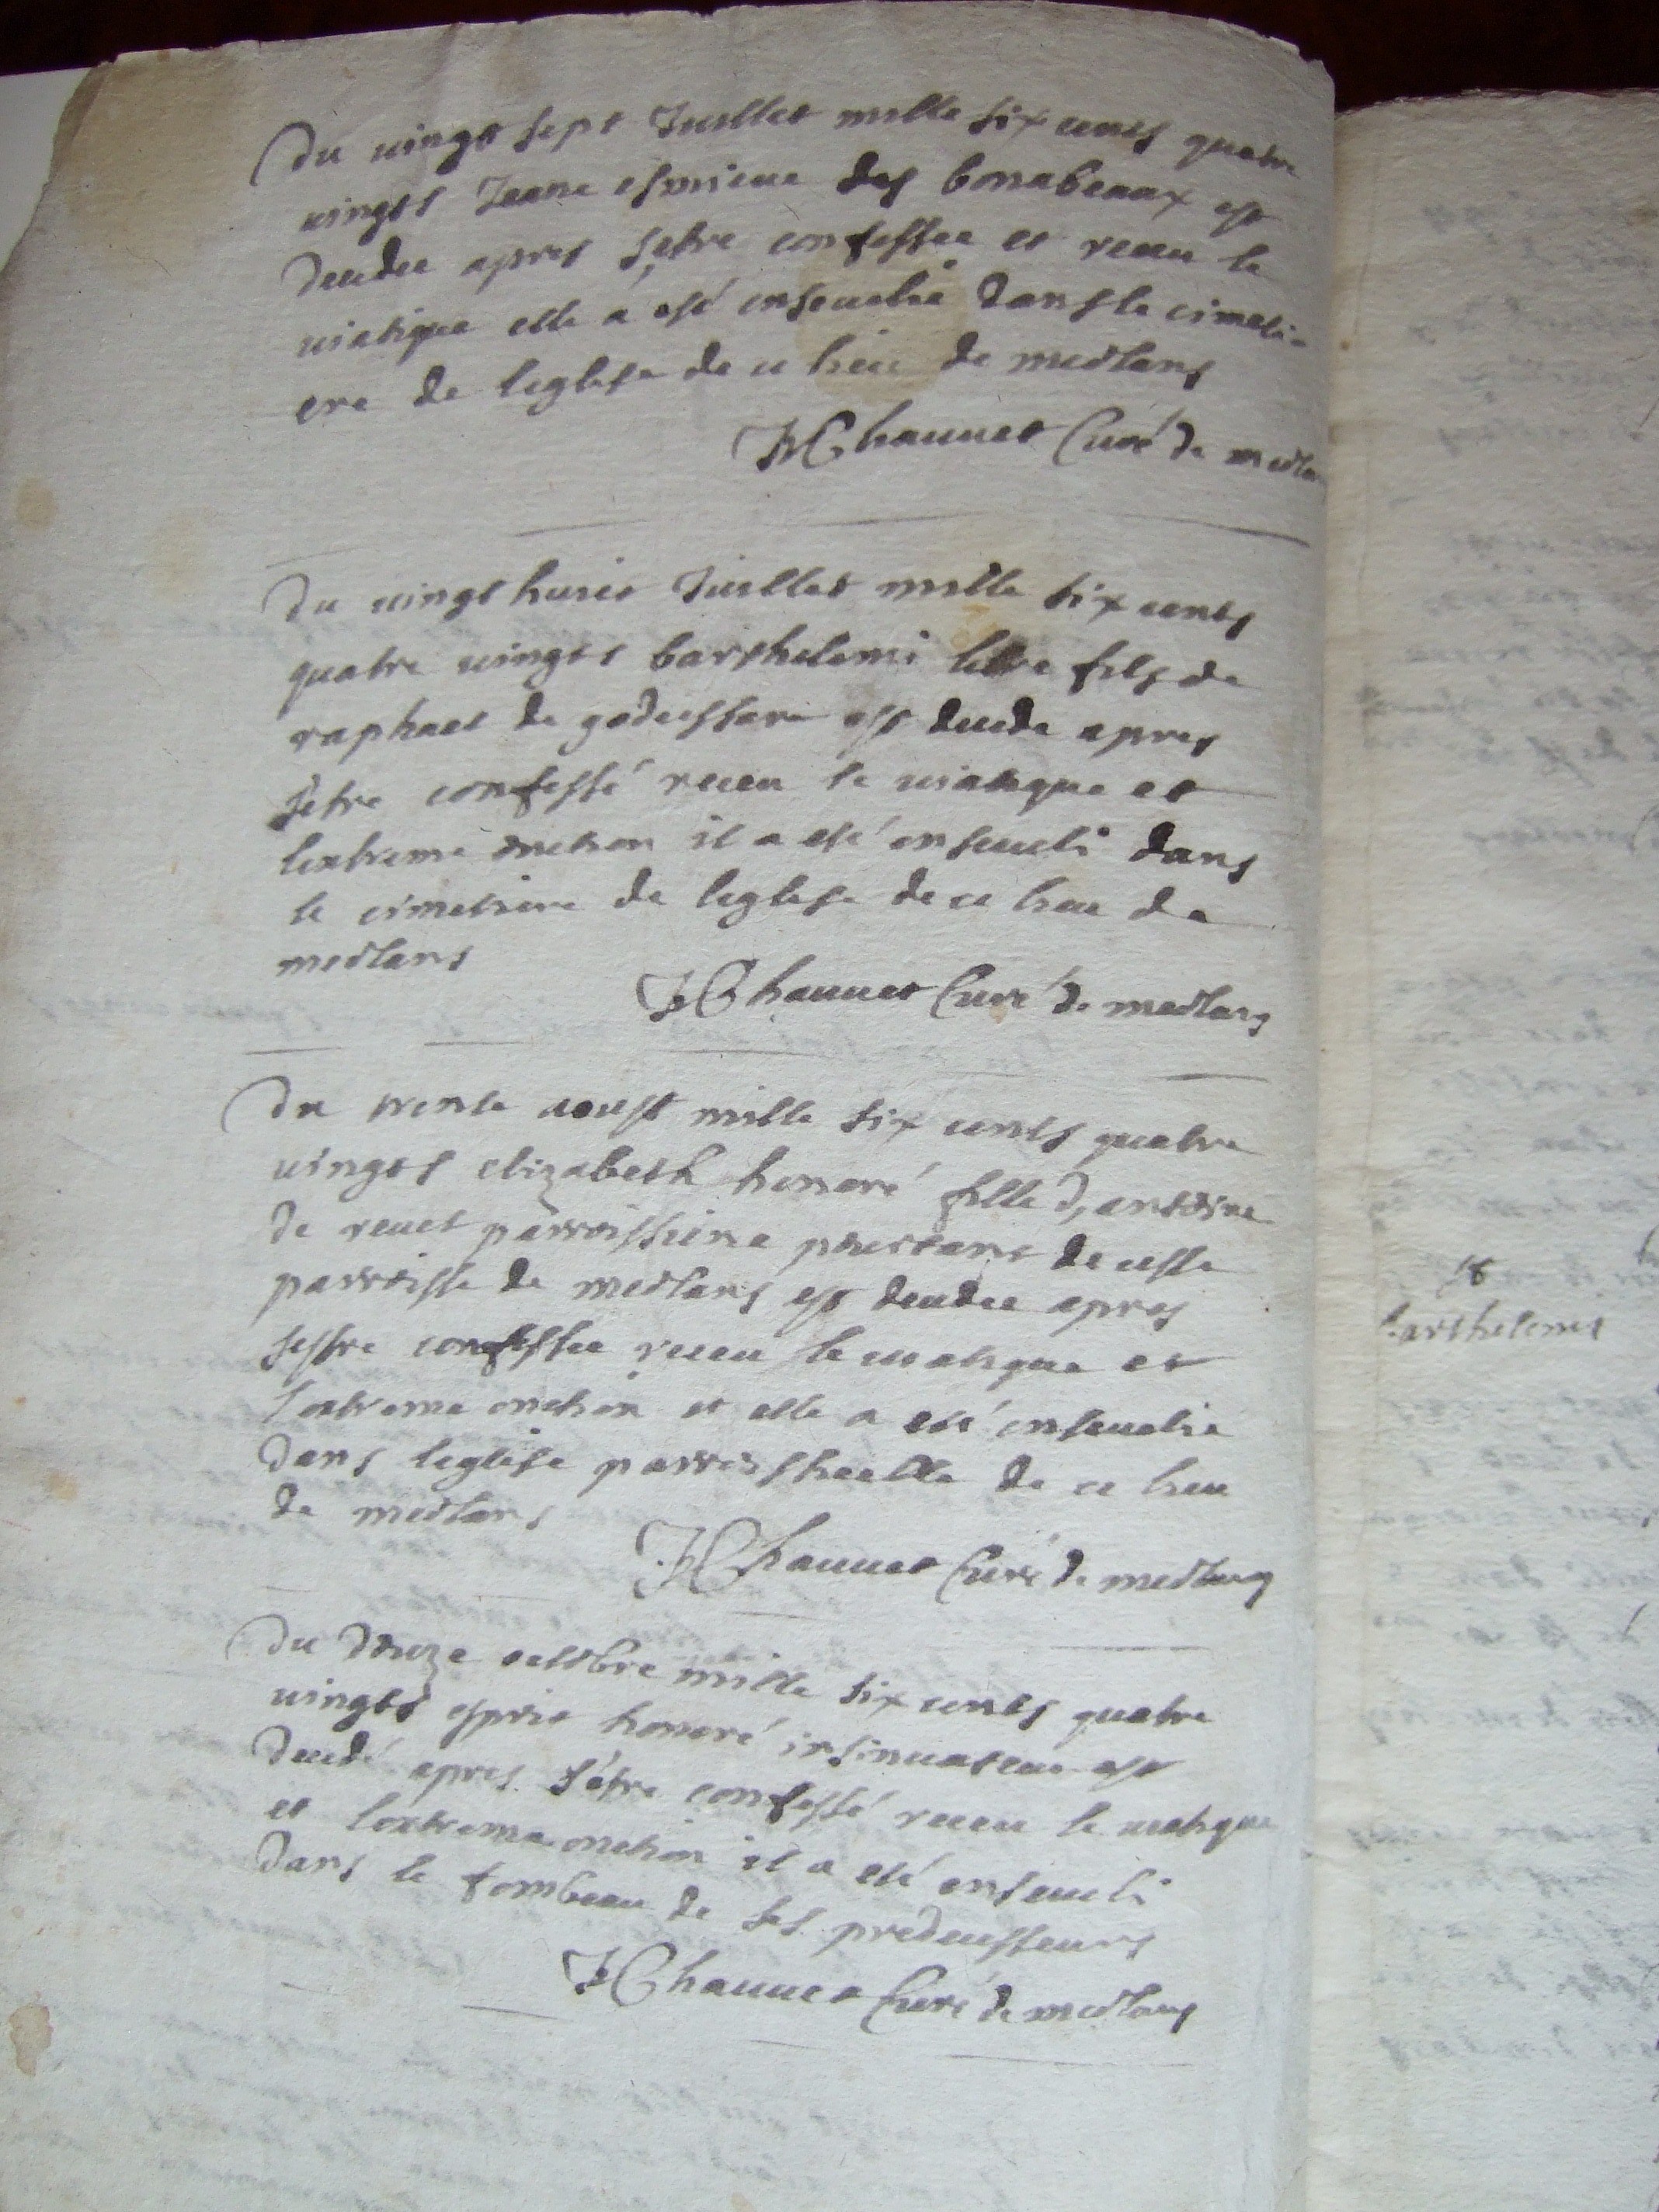 Du vingt sept Juillet mille six cents quatre
vingts Jeane esmieue des bonabeaux est
decedee apres s'etre confessee et receu le
viatique elle a esté ensevelie dans le cimeti-
ere de leglise de ce lieu de meolans
Chauuet Curé de meolans
Du vingt huict Juillet mille six cents
quatre vingts barthelemi fils de
raphael de godeissart est decede apres
s'etre confessé receu le viatique et
lextreme onction il a esté enseueli dans
le cimetiere de leglise de ce lieu de
meolans
Chauuet Curé de meolans
Du trente aoust mille six cents quatre
vingts elizabeth honoré fille d, antoine
de reuel parroissiene de cette
parroisse de meolans est decedee apres
sestre confessee receu le viatique et
lextreme onction et elle a esté enseuelie
dans leglise parroisshielle de ce lieu
de meolans
Chauuet Curé de meolans
Du douze octobre mille six cents quatre
vingts esprit honoré insinuateur est
decedé apres s'etre confessé receu le viatique
et lextreme onction il a esté enseueli
dans le tombeau de ses predecesseurs
Chauuet Curé de meolans
18
barthelemi